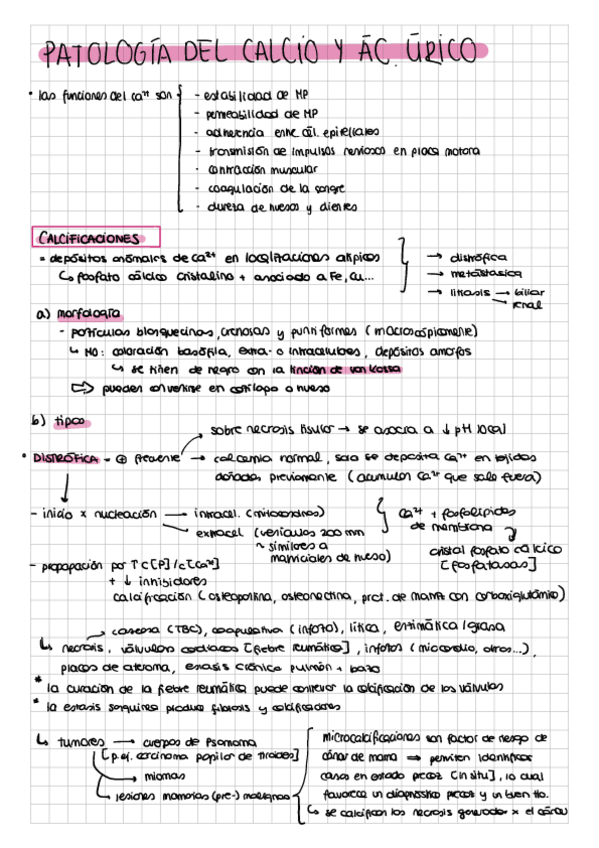 PATOLOGÍA DEL CALCIO Y ÁC. ÚRICO
• las funciones del Ca²⁺ son
- estabilidad de MP
- permeabilidad de MP
- adherencia entre cél. epiteliales
- transmisión de impulsos nerviosos en placa motora
- contracción muscular
- coagulación de la sangre
- dureza de huesos y dientes
CALCIFICACIONES
= depósitos anómalos de Ca²⁺ en localizaciones atípicas
↳ fosfato cálcico cristalino + asociado a Fe, Cu...
→ distrófica
→ metastásica
→ litiasis → biliar
→ renal
a) morfología
- partículas blanquecinas, arenosas y puntiformes (macroscópicamente)
↳ MO: coloración basófila, extra- o intracelulares, depósitos amorfos
↳ se tiñen de negro con la tinción de von Kossa
⇨ pueden convertirse en cartílago o hueso
b) tipos
sobre necrosis tisular → se asocia a ↓ pH local
• DISTRÓFICA - ⊕ frecuente → calcemia normal, solo se deposita Ca²⁺ en tejidos
dañados previamente (acumulan Ca²⁺ que sale fuera)
- inicio x nucleación → intracel. (mitocondrias)
extracel (vesículas 200 nm
~ similares a
matriciales de hueso)
Ca²⁺ + fosfolípidos
de membrana
cristal fosfato cálcico
[fosfatasas]
- propagación por ↑c[P]/c[Ca²⁺]
+ ↓ inhibidores
calcificación (osteopontina, osteonectina, prot. de matriz con carboxiglutámico)
→ caseosa (TBC), coagulativa (infarto), lítica, enzimática/grasa
↳ necrosis, válvulas cardiacas [fiebre reumática], infartos (miocardio, otros...),
placas de ateroma, éstasis crónico pulmón + bazo
* la curación de la fiebre reumática puede conllevar la calcificación de las válvulas
* la estasis sanguínea produce fibrosis y calcificaciones
↳ tumores → cuerpos de Psamoma
[p.ej. carcinoma papilar de tiroides]
→ miomas
→ lesiones mamarias (pre-) malignas
microcalcificaciones son factor de riesgo de
cáncer de mama ⇒ permiten identificar
casos en estado precoz (in situ], lo cual
favorece un diagnóstico precoz y un buen tto.
↳ se calcifican las necrosis generadas x el cáncer